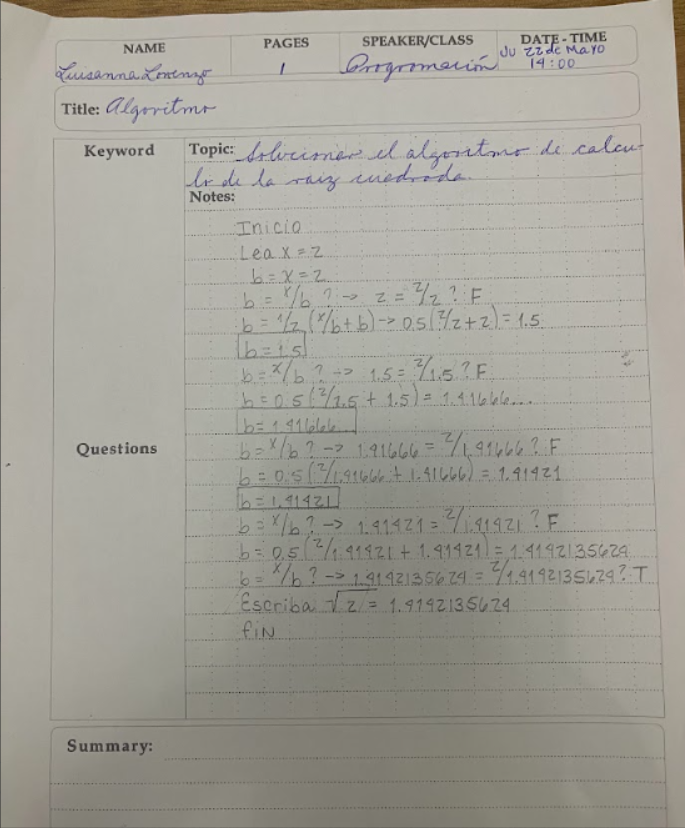 NAME PAGES SPEAKER/CLASS DATE - TIME
Luisanna Lorenzo 1 Programación Ju 22 de Mayo
14:00
Title: Algoritmo
Keyword Topic: Solucionar el algoritmo de calcu-
lo de la raiz cuadrada.
Notes:
Inicio
Lea x = 2
b = x = 2
b = x/b ? -> 2 = 2/2 ? F
b = 1/2 (x/b + b) -> 0.5 (2/2 + 2) = 1.5
b = 1.5
b = x/b ? -> 1.5 = 2/1.5 ? F
b = 0.5 (2/1.5 + 1.5) = 1.41666...
b = 1.41666...
Questions b = x/b ? -> 1.41666 = 2/1.41666 ? F
b = 0.5 (2/1.41666 + 1.41666) = 1.41421
b = 1.41421
b = x/b ? -> 1.41421 = 2/1.41421 ? F
b = 0.5 (2/1.41421 + 1.41421) = 1.4142135624
b = x/b ? -> 1.4142135624 = 2/1.4142135624 ? T
Escriba √2 = 1.4142135624
fiN
Summary: